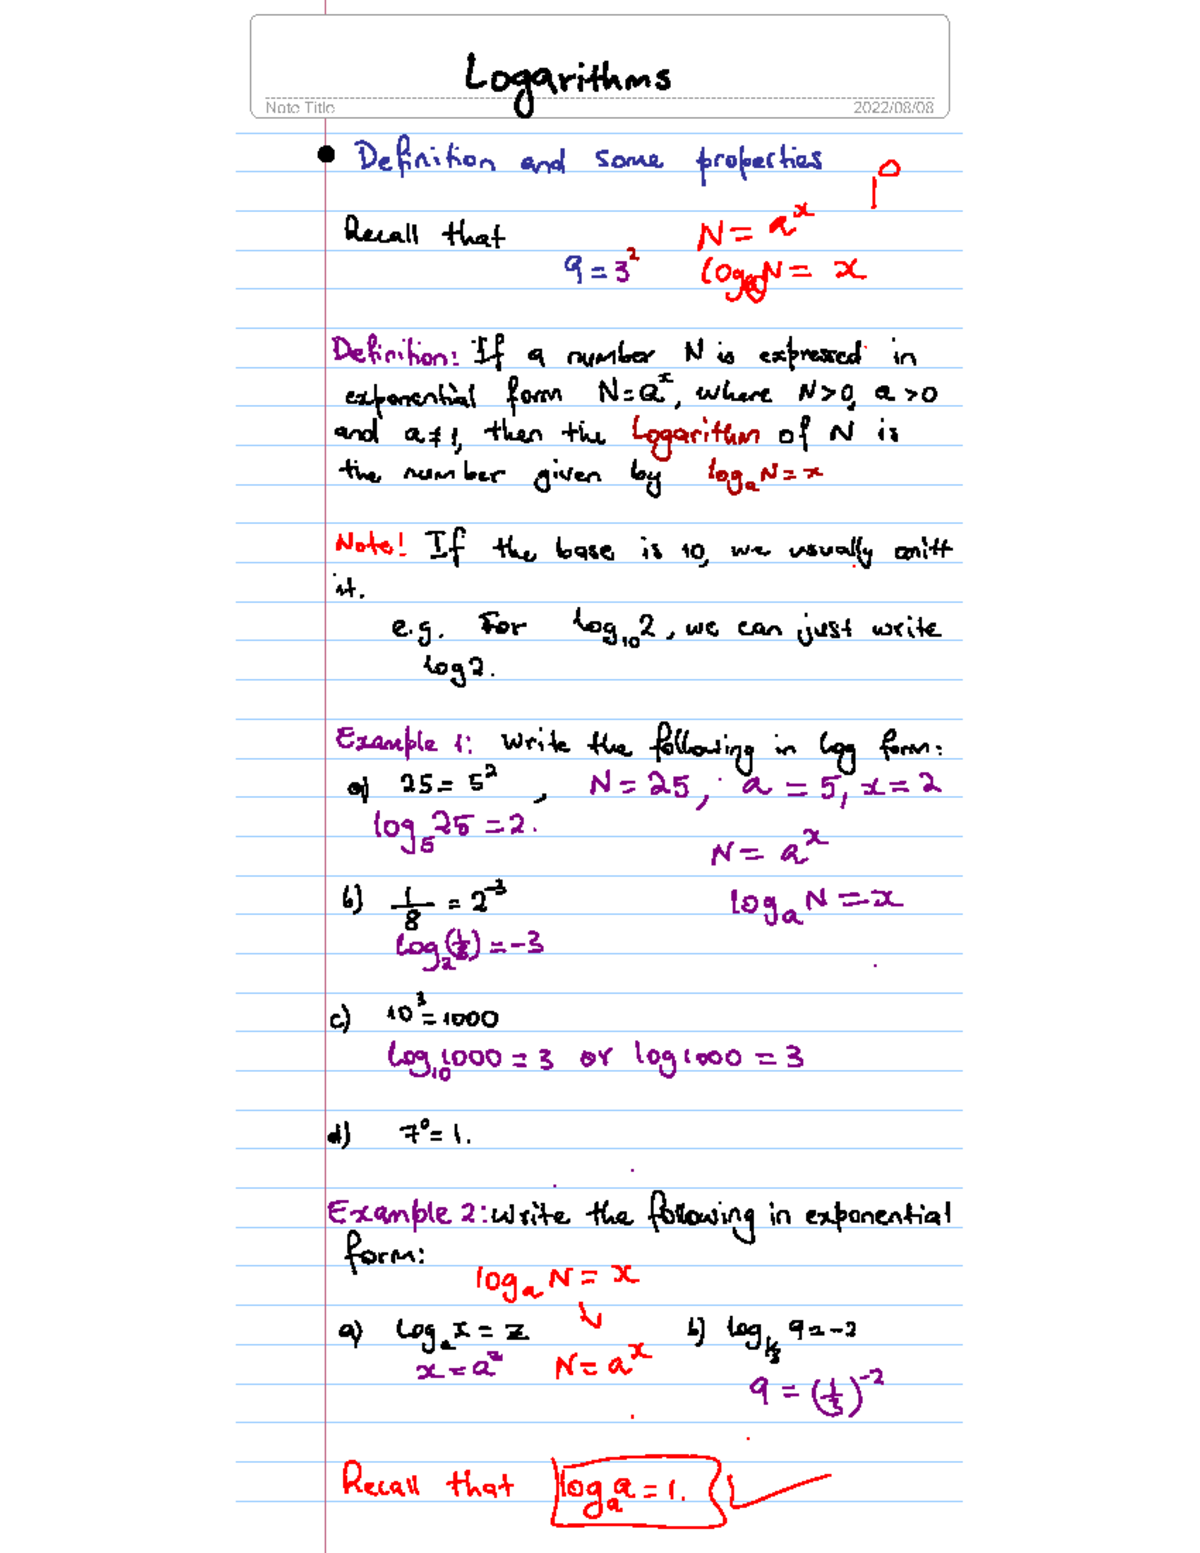 Logarithms
Note Title
2022/08/08
• Definition and some properties
1⁰
Recall that
N = aˣ
9 = 3²
logₐN = x
Definition: If a number N is expressed in
exponential form N=aˣ, where N>0, a>0
and a≠1, then the Logarithm of N is
the number given by logₐN = x
Note! If the base is 10, we usually omitt
it.
e.g. For log₁₀2, we can just write
log2.
Example 1: Write the following in log form:
a) 25 = 5², N = 25, a = 5, x = 2
log₅25 = 2.
N = aˣ
b) 1/8 = 2⁻³
logₐN = x
log₂(1/8) = -3
c) 10³ = 1000
log₁₀1000 = 3 or log1000 = 3
d) 7⁰ = 1.
Example 2: Write the following in exponential
form:
logₐN = x
a) logₐx = z
b) log_{1/3} 9 = -2
x = a^z
N = aˣ
9 = (1/3)⁻²
Recall that logₐa = 1.